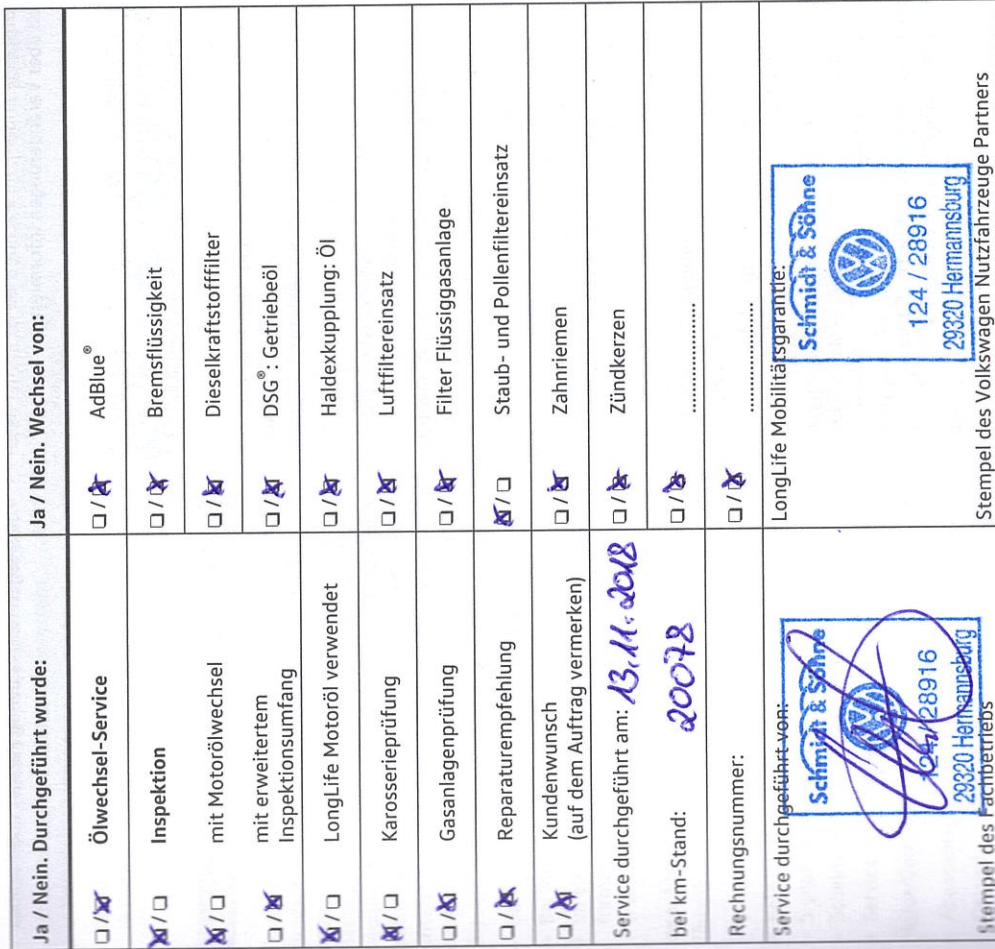 Ja / Nein. Durchgeführt wurde:
☐ / ☒ Ölwechsel-Service
☒ / ☐ Inspektion
☒ / ☐ mit Motorölwechsel
☐ / ☒ mit erweitertem
Inspektionsumfang
☒ / ☐ LongLife Motoröl verwendet
☒ / ☐ Karosserieprüfung
☐ / ☒ Gasanlagenprüfung
☐ / ☒ Reparaturempfehlung
☐ / ☒ Kundenwunsch
(auf dem Auftrag vermerken)
Service durchgeführt am: 13.11.2018
bei km-Stand: 20078
Rechnungsnummer:
Service durchgeführt von:
Schmidt & Söhne
124 / 28916
29320 Hermannsburg
Stempel des Fachbetriebs
Ja / Nein. Wechsel von:
☐ / ☒ AdBlue®
☐ / ☒ Bremsflüssigkeit
☐ / ☒ Dieselkraftstofffilter
☐ / ☒ DSG®: Getriebeöl
☐ / ☒ Haldexkupplung: Öl
☐ / ☒ Luftfiltereinsatz
☐ / ☒ Filter Flüssiggasanlage
☒ / ☐ Staub- und Pollenfiltereinsatz
☐ / ☒ Zahnriemen
☐ / ☒ Zündkerzen
☐ / ☒ ........................
☐ / ☒ ........................
LongLife Mobilitätsgarantie:
Schmidt & Söhne
124 / 28916
29320 Hermannsburg
Stempel des Volkswagen Nutzfahrzeuge Partners